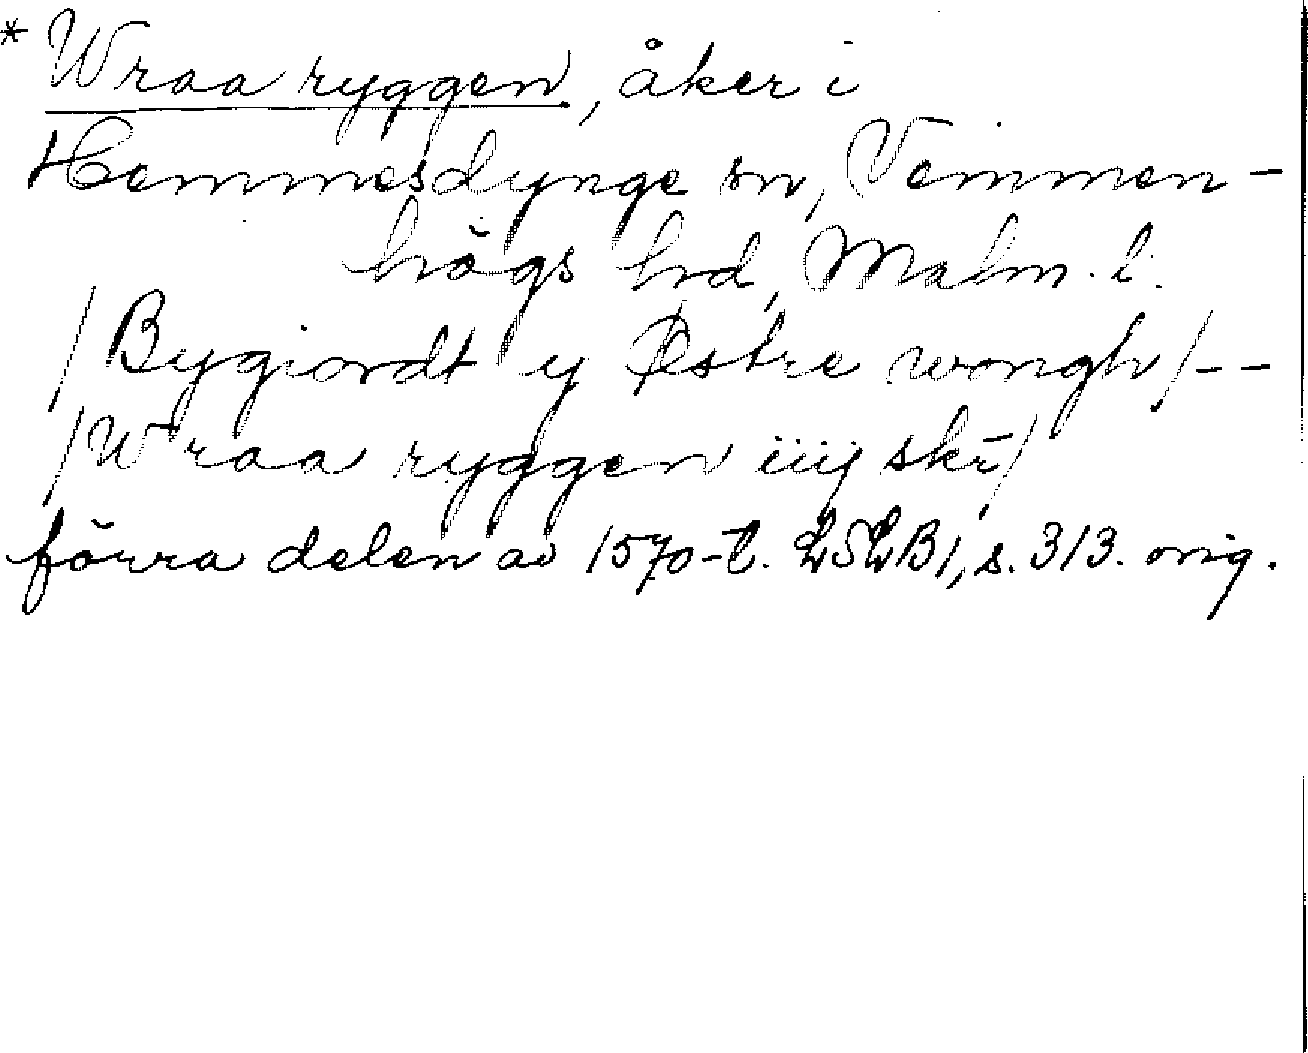 * Wraa ryggen, åker i
Hemmesdynge sn, Vemmen-
högs hd, Malm. l.
/Bygiordt y Østre wongh/--
/Wraa ryggen iiij skr̄/
förra delen av 1570-t. LSLB1, s. 313. orig.